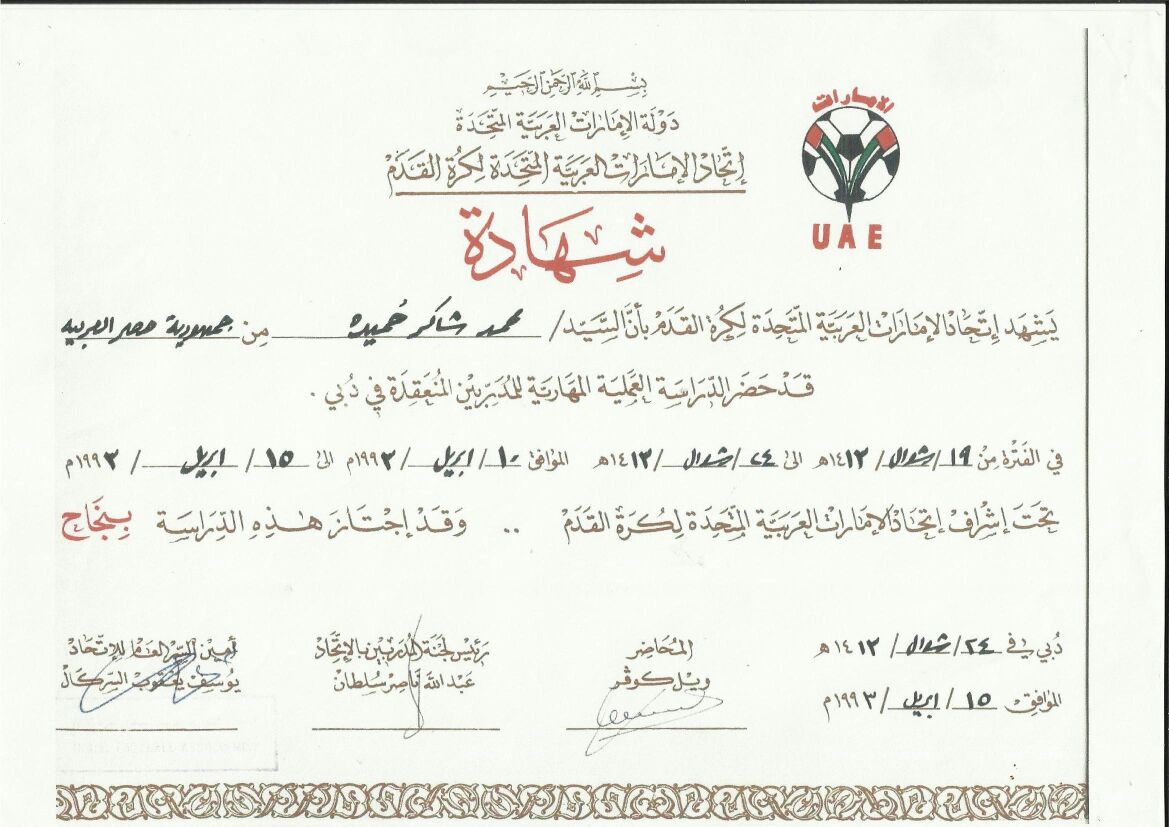 بِسْمِ اللهِ الرَّحْمنِ الرَّحِيْمِ
دَوْلَة الإِمَارَات العَرَبيَّة المتَّحَدَة
إتَّحَاد الإمَارَات العَرَبيَّة المتَّحِدَة لِكرَة القَدَمْ
الإمارات
UAE
شِهَادَة
يَشهِد إتّحَاد الإمَارَات العَرَبيَّة المتَّحَدَة لِكُرَة القَدَمْ بأنَّ السَّيَد/ محمد شاكر حُميده مِن جمهورية مصر العربيه
قَدْ حَضَر الدِّرَاسَة العَمَلِية المَهَارَية للمُدَرِّبيْن المُنعَقِدَة في دُبي .
في الفَتْرَة مِنْ ١٩/شوال/١٤١٣هـ الى ٢٤/شوال/١٤١٣هـ الموافق ١٠/ابريل/١٩٩٣م الى ١٥/ابريل/١٩٩٣م
تَحتَ إشْرَاف إتحَاد الإمَارَات العَرَبيَّة المتَّحدَة لِكُرَة القَدَمْ .. وَقَدْ إجْتَازَ هَذِهِ الدِّرَاسَة بِنَجَاح
دُبي في ٢٤/شوال/١٤١٣هـ
الموَافِق ١٥/ابريل/١٩٩٣م
المُحَاضِر
ويْل كوفر
رَئيْس لَجنَة المُدَرِّبيْن بالإتِّحَاد
عَبْد الله نَاصِر سُلطَان
أمِين السِّر العَام للإتّحَاد
يُوسِف يَعْقوب السِّركَالْ